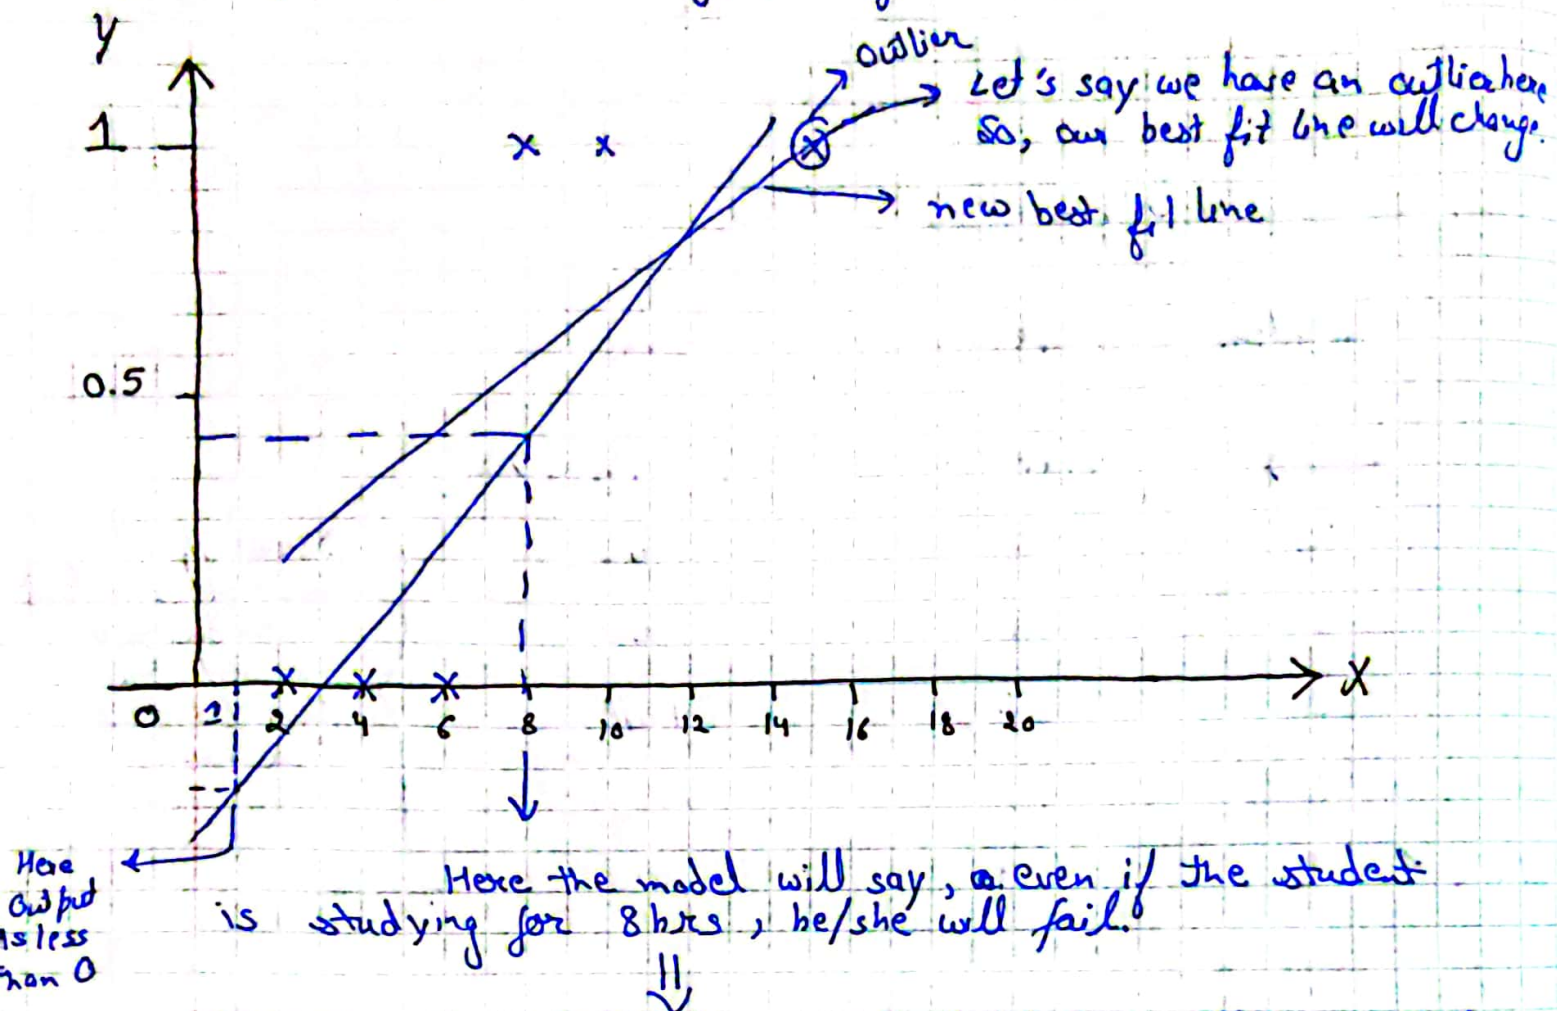 y
outlier
Let's say we have an outlier here
So, our best fit line will change.
1
new best fit line
0.5
X
0 1 2 4 6 8 10 12 14 16 18 20
Here
output
is less
than 0
Here the model will say, even if the student
is studying for 8 hrs, he/she will fail.